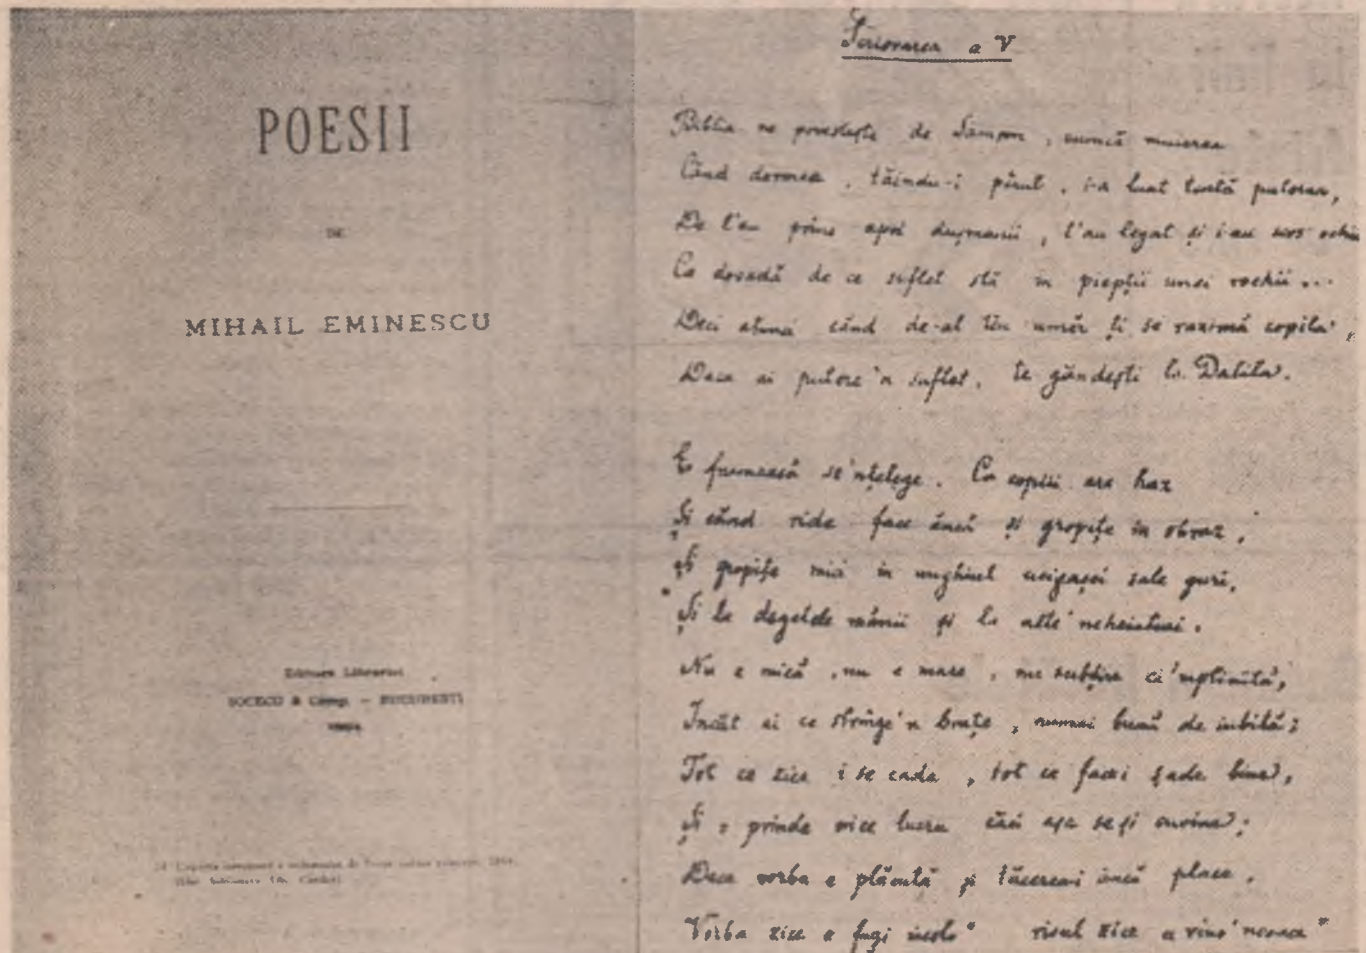 POESII
DE
MIHAIL EMINESCU
Editura Librariei
SOCECU & Comp. — BUCURESTI
Scrisoarea a V
Biblia ne povestește de Samson, muierea
Când dormea, tăindu-i părul, i-a luat toată puterea,
De l'au prins apoi dușmanii, l'au legat și i-au scos ochii
Ca dovadă de ce suflet stă in pieptii unei rochii...
Deci atunci când de-al tău umăr ți se razimă copila,
Daca ai putere'n suflet, te gândești la Dalila.
E frumoasă se'nțelege. Ca copiii are haz
Și când ride face încă și gropițe in obraz,
Și gropițe mici in unghiul ucigașei sale guri,
Și la degetele mânii și la alte
Nu e mică, nu e mare, nu subțire ci'mplinită,
Încât ai ce strînge'n brațe, numai bună de iubită;
Tot ce zice i se cade, tot ce face-i șade bine,
Și o prinde orice lucru căci așa se și cuvine;
Daca vorba e plăcută și tăcerea-i încă place,
Vorba zice „fugi incolo" risul zice „vino'ncoace"